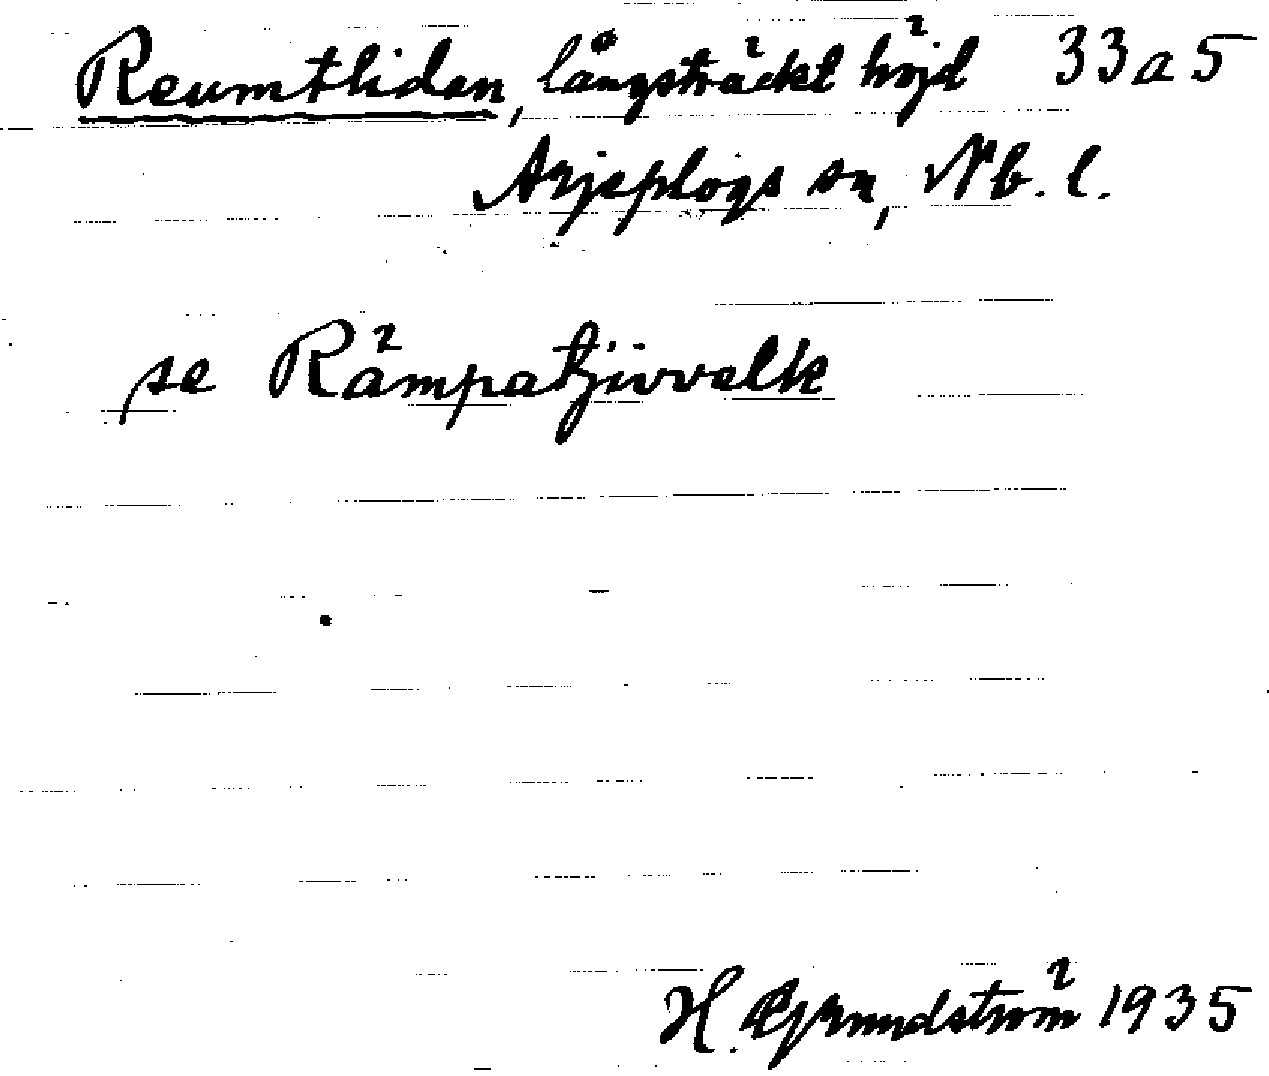 Reumtliden, långsträckt höjd 33a5
Arjeplogs sn, Nb. l.
se Rämpatjivvelk
H. Grundström 1935